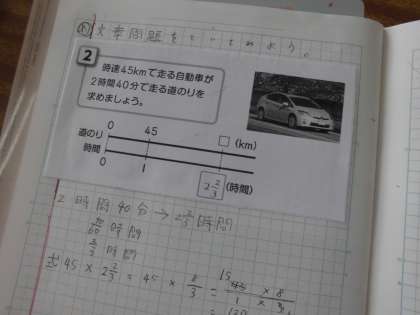 め 文章問題をといてみよう。
2
時速45kmで走る自動車が
2時間40分で走る道のりを
求めましょう。
道のり 0 45 □ (km)
時間 0 1 2 2/3 (時間)
2時間40分→2 2/3時間
40/60時間
2/3時間
式 45 × 2 2/3 = 45 × 8/3 = 15 45 × 8 / 1 × 3
= 120